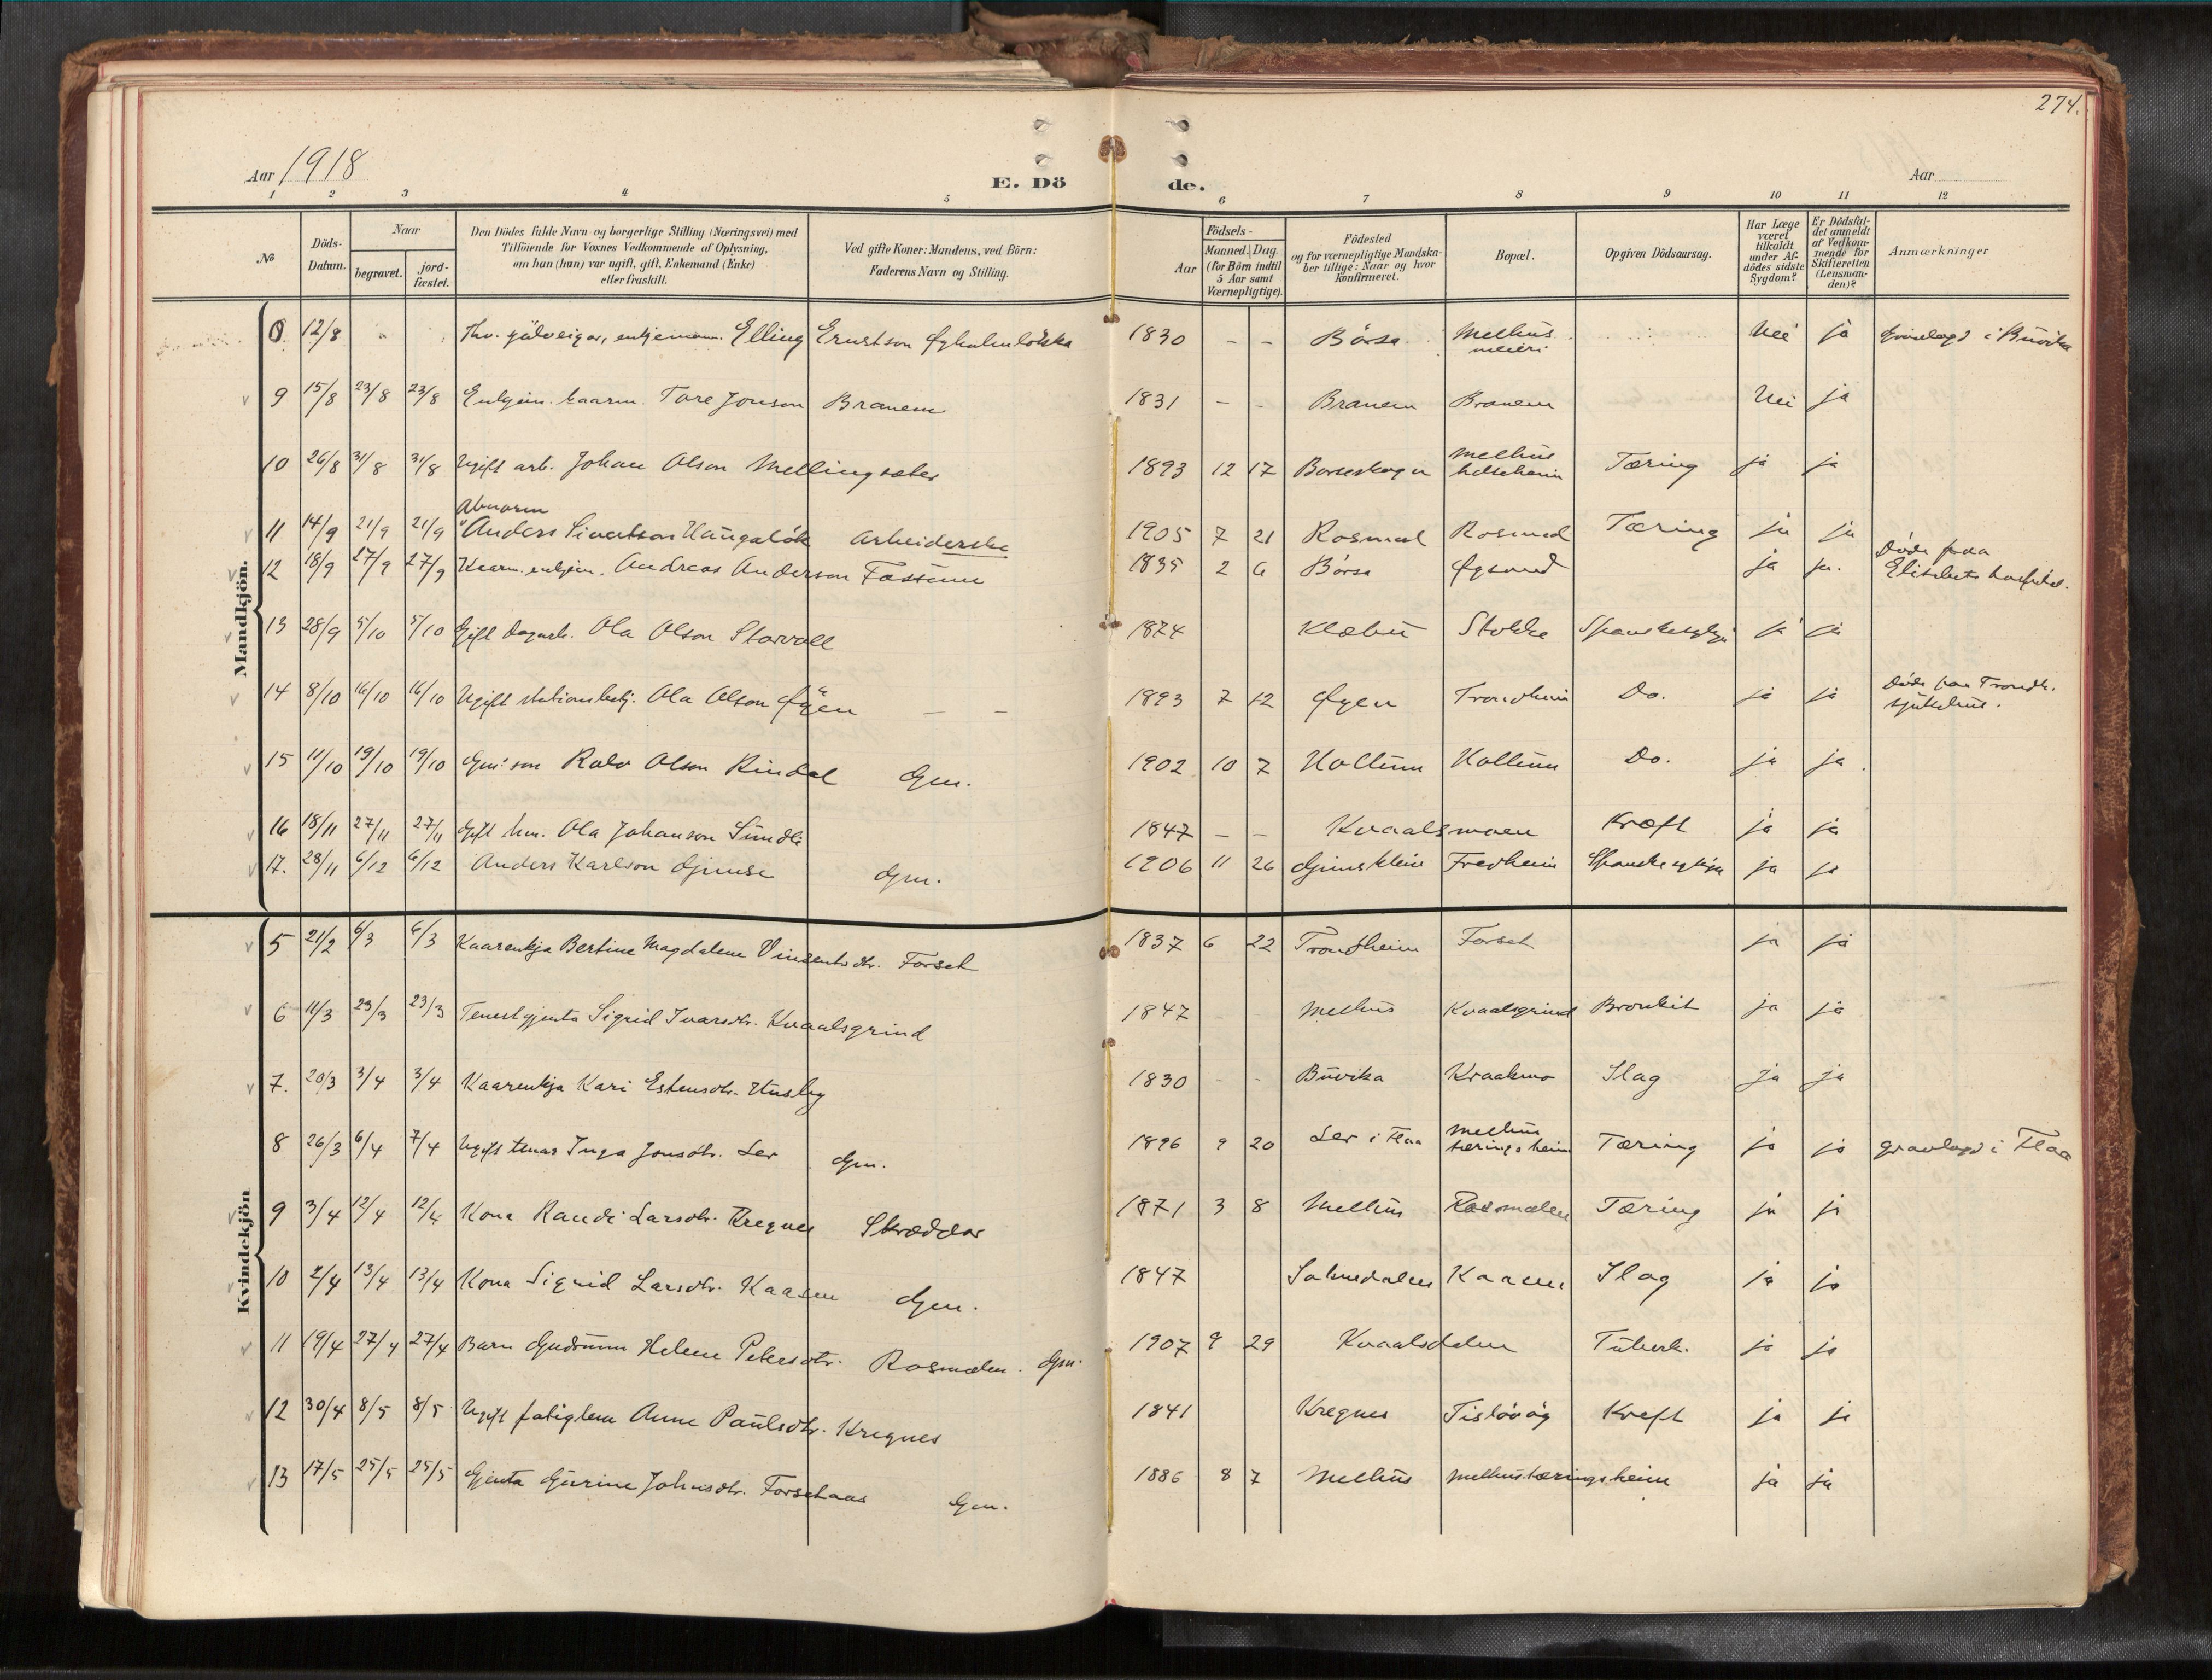 274.
Aar 1918
E. Dö de.
Aar
1 2 3 4 5 6 7 8 9 10 11 12
No
Döds-Datum.
Naar
begravet.
jord-fæstet.
Den Dödes fulde Navn og borgerlige Stilling (Næringsvei) med
Tilföiende for Voxnes Vedkommende af Oplysning,
om han (hun) var ugift, gift, Enkemand (Enke)
eller fraskilt.
Ved gifte Koner: Mandens, ved Börn:
Faderens Navn og Stilling.
Födsels-
Aar
Maaned. Dag.
(for Börn indtil
5 Aar samt
Værnepligtige).
Födested
og for værnepligtige Mandska-
ber tillige: Naar og hvor
konfirmeret.
Bopæl.
Opgiven Dödsaarsag.
Har Læge
været
tilkaldt
under Af-
dödes sidste
Sygdom?
Er Dödsfal-
det anmeldt
af Vedkom-
mende for
Skifteretten
(Lensman-
den)?
Anmærkninger
Mandkjön.
8 12/8 Elling Ernstson 1830 – – Börsa Melhus meieri Nei ja i Buvika
9 15/8 23/8 23/8 Enkjem. kaarm. Tore Jonson Branem 1831 – – Branem Branem Nei ja
10 26/8 31/8 31/8 Ugift arb. Johan Olson Mellingsæter 1893 12 17 Børseskogn Melhus Tæring ja ja
Abnorm
11 14/9 21/9 21/9 Anders Sivertson Haugaløk 1905 7 21 Rosmæl Rosmæl Tæring ja ja
12 18/9 27/9 27/9 Kaarm. enkjem. Andreas Anderson Fossum 1835 2 6 Børse Øysand ja ja. Døde paa Elisabets hospital.
13 28/9 5/10 5/10 Gift dagarb. Ola Olson Storvoll 1874 Klæbu Stokke ja ja
14 8/10 16/10 16/10 Ugift stationsbetj. Ola Olson Øyen – – 1893 7 12 Øyen Trondheim Do. ja ja Døde paa Trondh. sjukehus.
15 11/10 19/10 19/10 Gm. son Rolv Olson Rindal Gm. 1902 10 7 Hollum Hollum Do. ja ja
16 18/11 27/11 27/11 Gift hm. Ola Johanson Sundli 1847 – – Kvaalsmoen Kræft ja ja
17. 28/11 6/12 6/12 Anders Karlson Gjimse Gm. 1906 11 26 Fredheim ja ja
Kvindekjön
5 21/2 6/3 6/3 Kaarenkja Bertine Magdalene Vinsentsdtr. Forset 1837 6 22 Trondheim Forset ja ja
6 11/3 23/3 23/3 Tenestgjenta Sigrid Ivarsdtr. Kvaalsgrind 1847 Melhus Kvaalsgrind Bronkit ja ja
7. 20/3 3/4 3/4 Kaarenkja Kari Estensdtr. Husby 1830 - - Buvika Kvaalsmo Slag ja ja
8 26/3 6/4 7/4 Ugift tenar Inga Jonsdtr. Ler Gm. 1896 9 20 Ler i Flaa Melhus tæringsheim Tæring ja ja gravlagd i Flaa
9 3/4 12/4 12/4 Kona Randi Larsdtr. Kregnes Skræddar 1871 3 8 Melhus Rosmælen Tæring ja ja
10 2/4 13/4 13/4 Kona Sigrid Larsdtr. Kaasen Gm. 1847 Soknedalen Kaasen Slag ja ja
11 19/4 27/4 27/4 Barn Gudrunn Helene Petersdtr. Rosmælen. Gm. 1907 9 29 Kvaalsdalen Tuberk. ja ja
12 30/4 8/5 8/5 Ugift fatiglem Anne Paulsdtr. Kregnes 1841 Kregnes Kreft ja ja
13 17/5 25/5 25/5 Gjenta Gurine Johnsdtr. Forsetaas Gm. 1886 8 7 Melhus Melhus tæringsheim ja ja